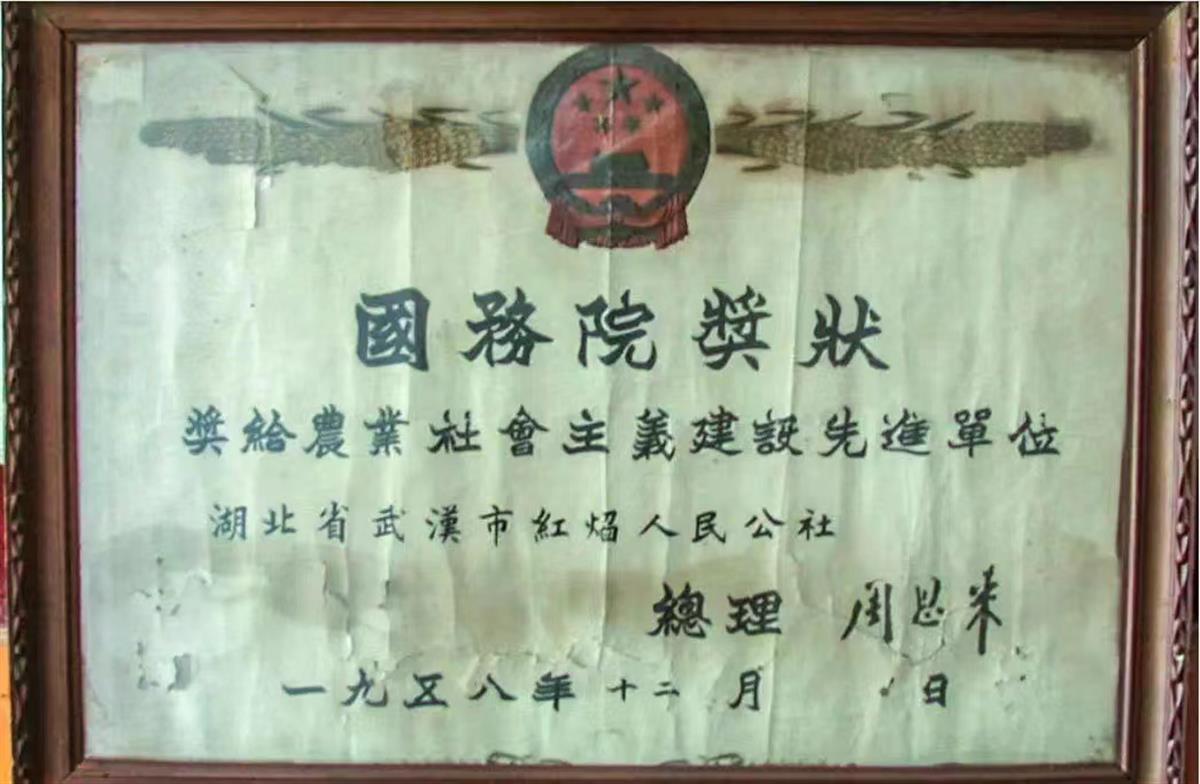 國務院獎狀
獎給農業社會主義建設先進單位
湖北省武漢市紅焰人民公社
總理 周恩来
一九五八年十二月 日